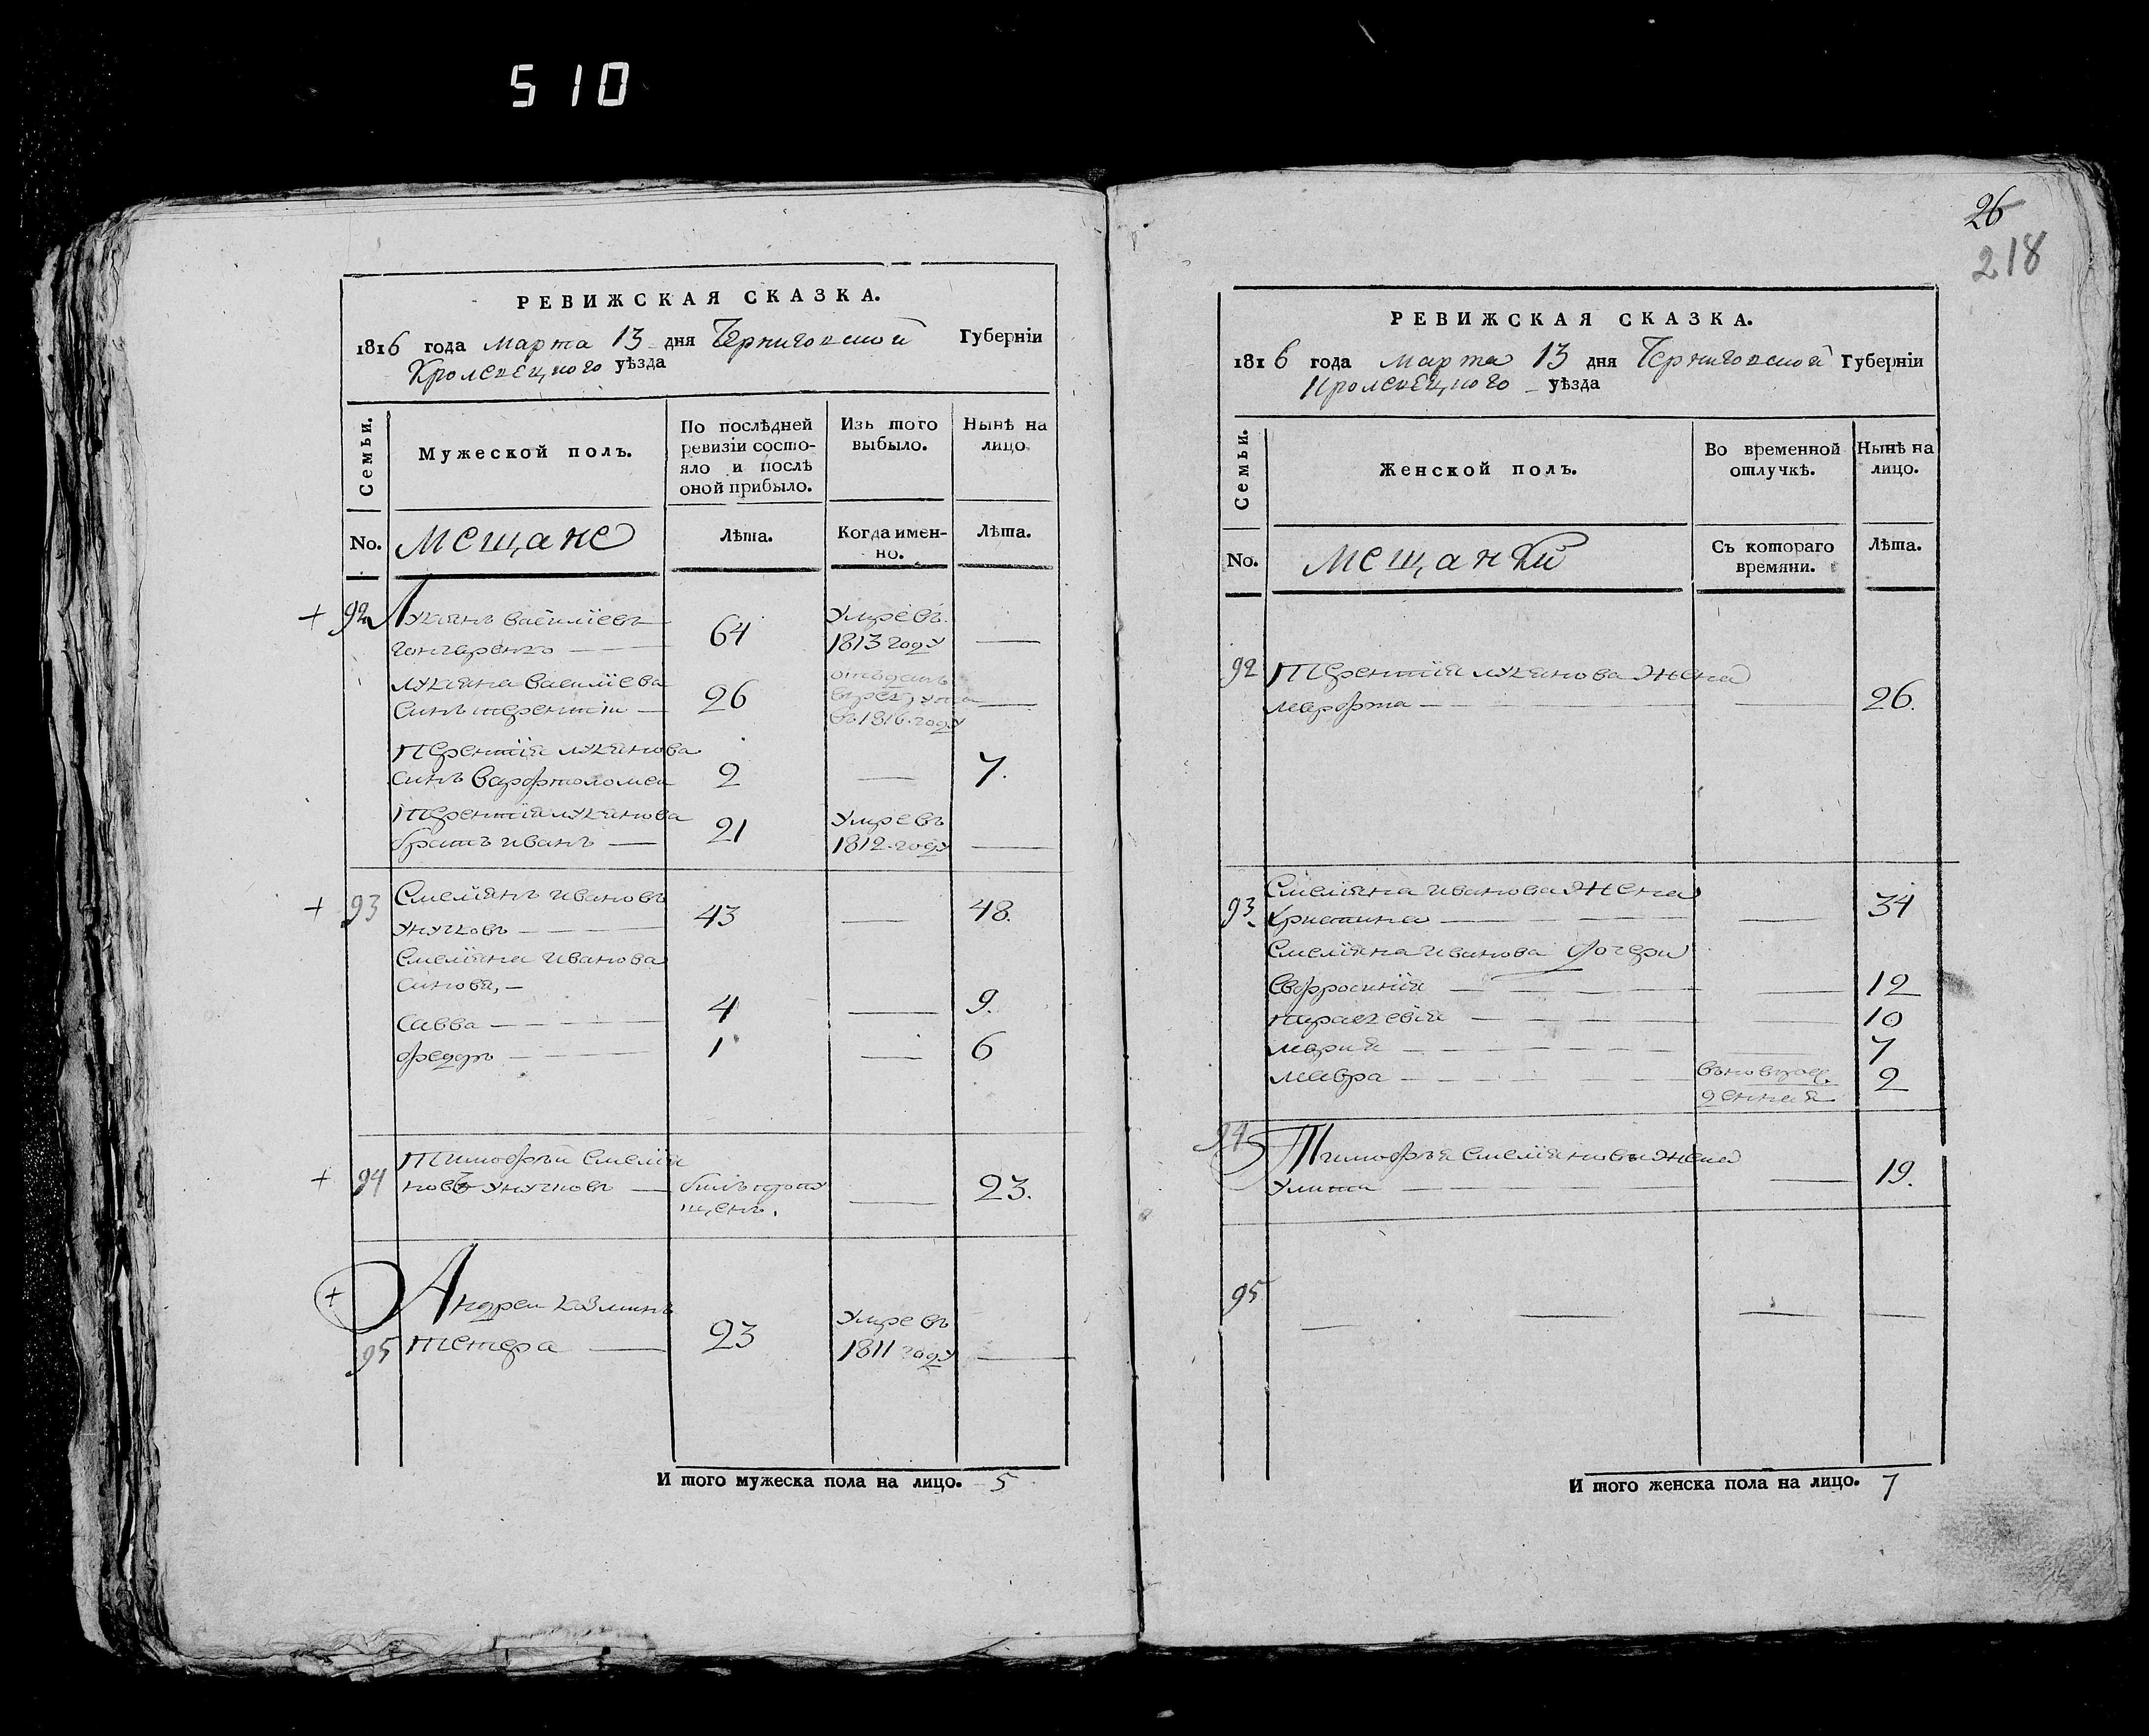 510
РЕВИЖСКАЯ СКАЗКА.
1816 года марта 13 дня Черниговской Губерніи
Кролевецкого уѣзда
Семьи.
Мужеской полъ.
По послѣдней ревизіи состояло и послѣ оной прибыло.
Изъ того выбыло.
Нынѣ на лицо.
No. мещане
Лѣта.
Когда именно.
Лѣта.
+ 92 Лукянъ василіевъ
гончаренко — 64 умревъ 1813 году —
лукяна василіева
синъ терентіи — 26 отъданъ в рекруты въ 1816. году —
Терентія лукянова
синъ варфтоломеи 2 — 7.
Терентія лукянова
братъ иванъ — 21 умревъ 1812. году —
+ 93 Смеліянъ ивановъ
унучковъ — 43 — 48.
Смеліяна иванова
синовя, —
Савва — 4 — 9.
федоръ — 1 — 6
+ 94 Тимофѣи Смелія
новъ унучковъ — билъ пропущенъ. — 23.
+ 95 Андреи козминъ
тетера — 23 умревъ 1811 году —
И того мужеска пола на лицо. 5
26
218
РЕВИЖСКАЯ СКАЗКА.
1816 года марта 13 дня Черниговской Губерніи
Кролевецкого уѣзда
Семьи.
Женской полъ.
Во временной отлучкѣ.
Нынѣ на лицо.
No. мещанки
Съ котораго времяни.
Лѣта.
92 Терентія лукянова жена
марфта — — 26.
93. Смеліяна иванова жена
христина — — 34
Смеліяна иванова дочери
Евфросинія — — 12
параскевія — — 10
марія — — 7
мавра — вновь рожденная 2
94 Тимофѣя Смеліянова жена
улита — — 19.
95 — — — —
И того женска пола на лицо. 7